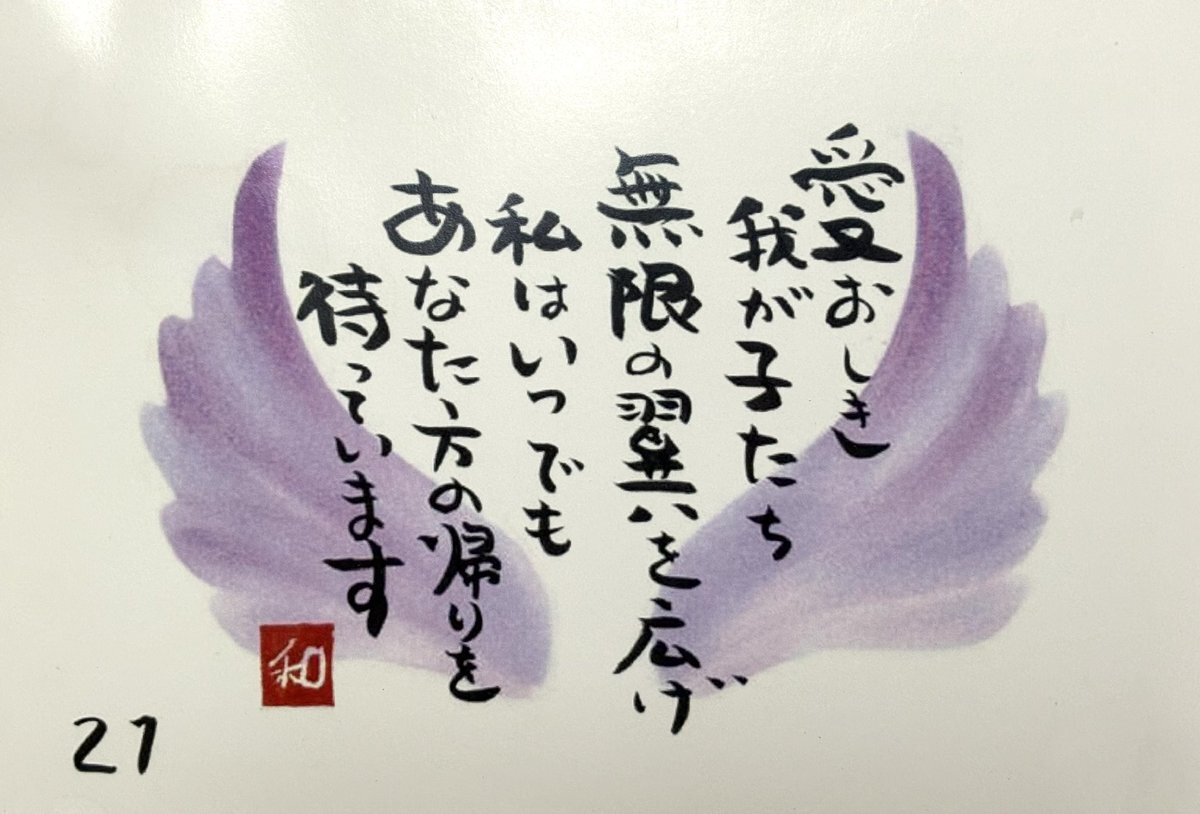 愛おしき
我が子たち
無限の翼を広げ
私はいつでも
あなた方の帰りを
待っています
和
21